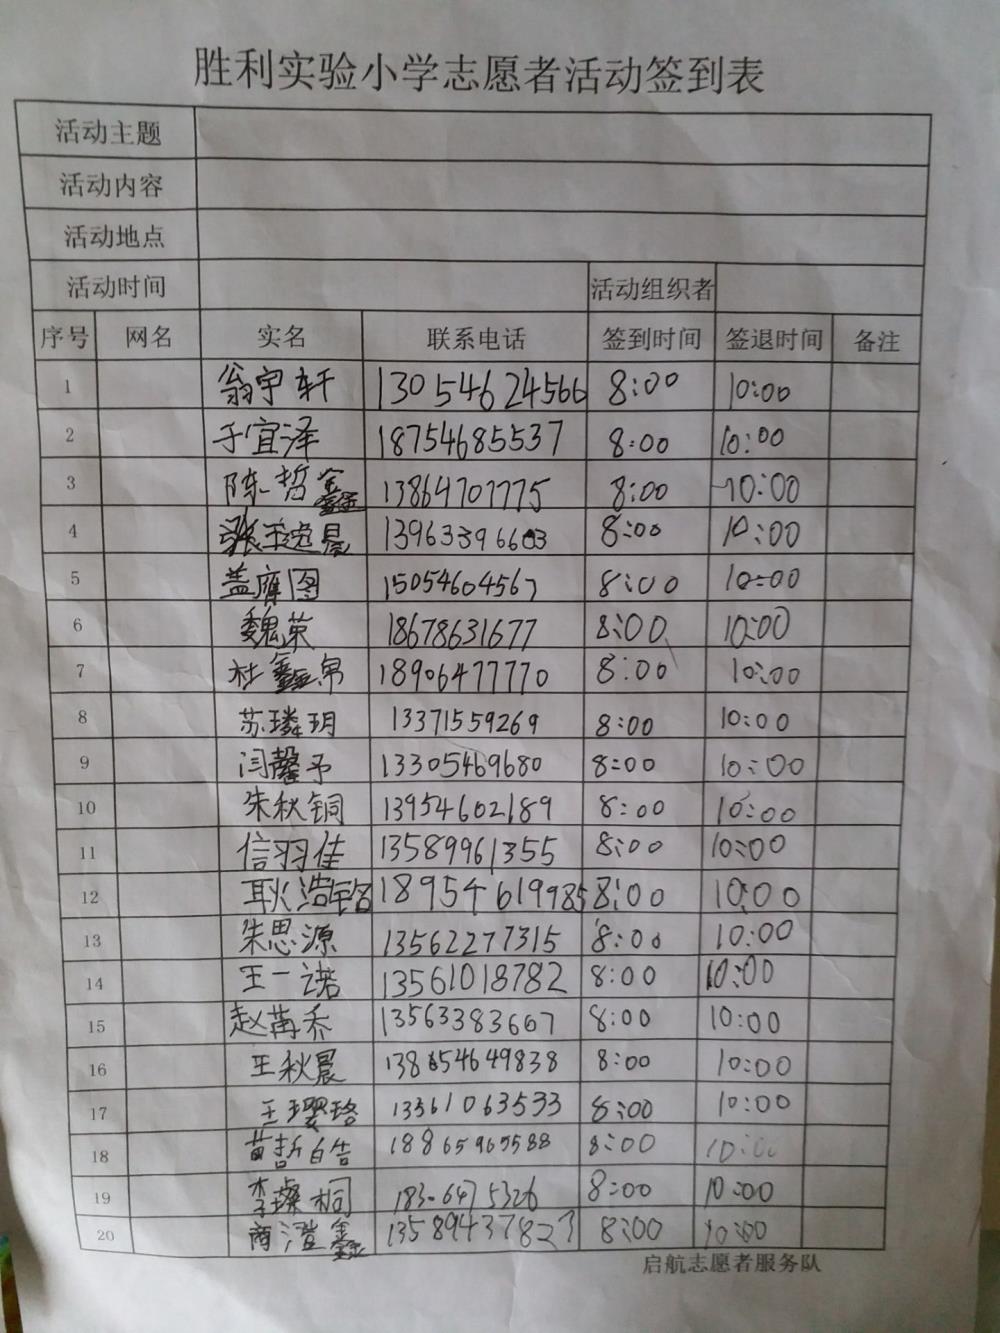 胜利实验小学志愿者活动签到表
活动主题
活动内容
活动地点
活动时间 活动组织者
序号 网名 实名 联系电话 签到时间 签退时间 备注
1 翁宇轩 13054624566 8:00 10:00
2 于宜泽 18754685537 8:00 10:00
3 陈哲鑫 13864707775 8:00 10:00
4 8:00 10:00
5 盖膺图 15054604567 8:00 10:00
6 魏英 18678631677 8:00 10:00
7 杜鑫帛 18906477770 8:00 10:00
8 苏璘玥 13371559269 8:00 10:00
9 闫馨予 13305469680 8:00 10:00
10 朱秋铜 13954602189 8:00 10:00
11 信羽佳 13589961355 8:00 10:00
12 耿浩铭 18954619985 8:00 10:00
13 朱思源 13562277315 8:00 10:00
14 王一诺 13561018782 8:00 10:00
15 赵苒乔 13563383667 8:00 10:00
16 王秋晨 13854649838 8:00 10:00
17 王璎珞 13361063533 8:00 10:00
18 黄哲皓 18865965588 8:00 10:00
19 李璨桐 8:00 10:00
20 商滢鑫 13589437827 8:00 10:00
启航志愿者服务队